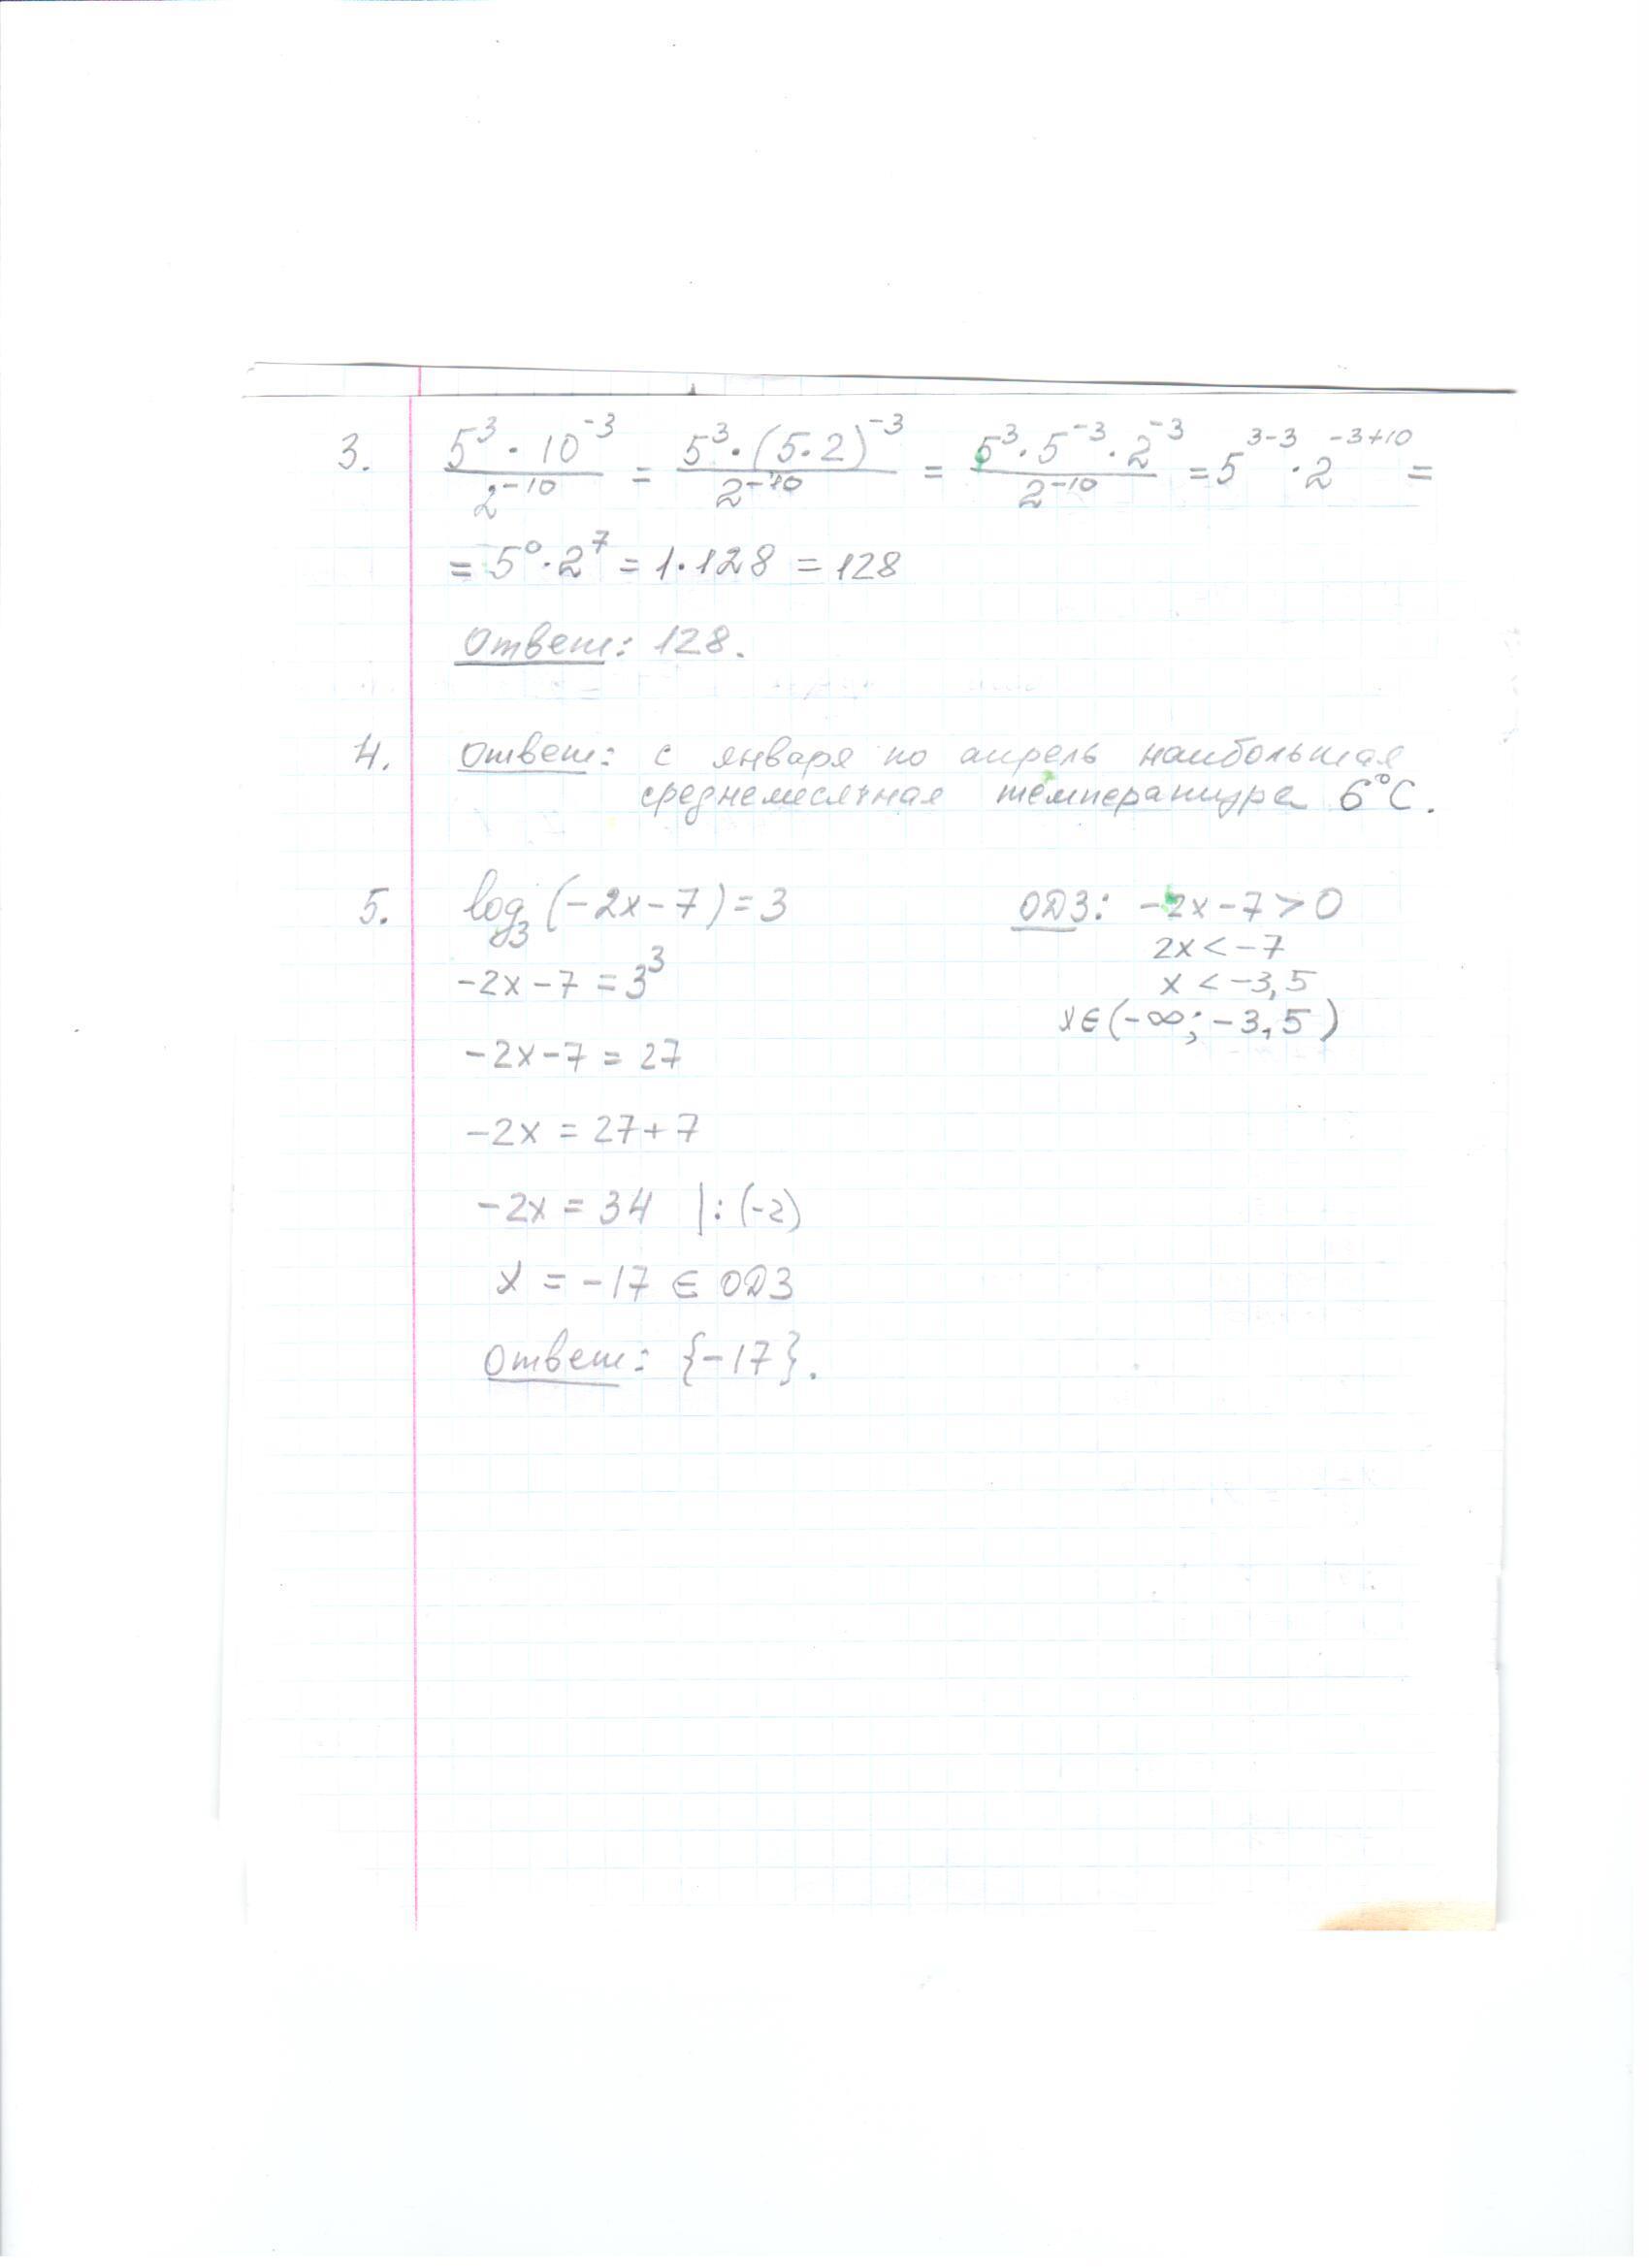 3. 5³ · 10⁻³ / 2⁻¹⁰ = 5³ · (5·2)⁻³ / 2⁻¹⁰ = 5³ · 5⁻³ · 2⁻³ / 2⁻¹⁰ = 5³⁻³ · 2⁻³⁺¹⁰ =
= 5⁰ · 2⁷ = 1 · 128 = 128
Ответ: 128.
4. Ответ: с января по апрель наибольшая
среднемесячная температура 6°С.
5. log₃(-2x-7)=3 ОДЗ: -2x-7>0
2x<-7
-2x-7=3³ x<-3,5
x∈(-∞;-3,5)
-2x-7=27
-2x=27+7
-2x=34 |:(-2)
x=-17∈ОДЗ
Ответ: {-17}.